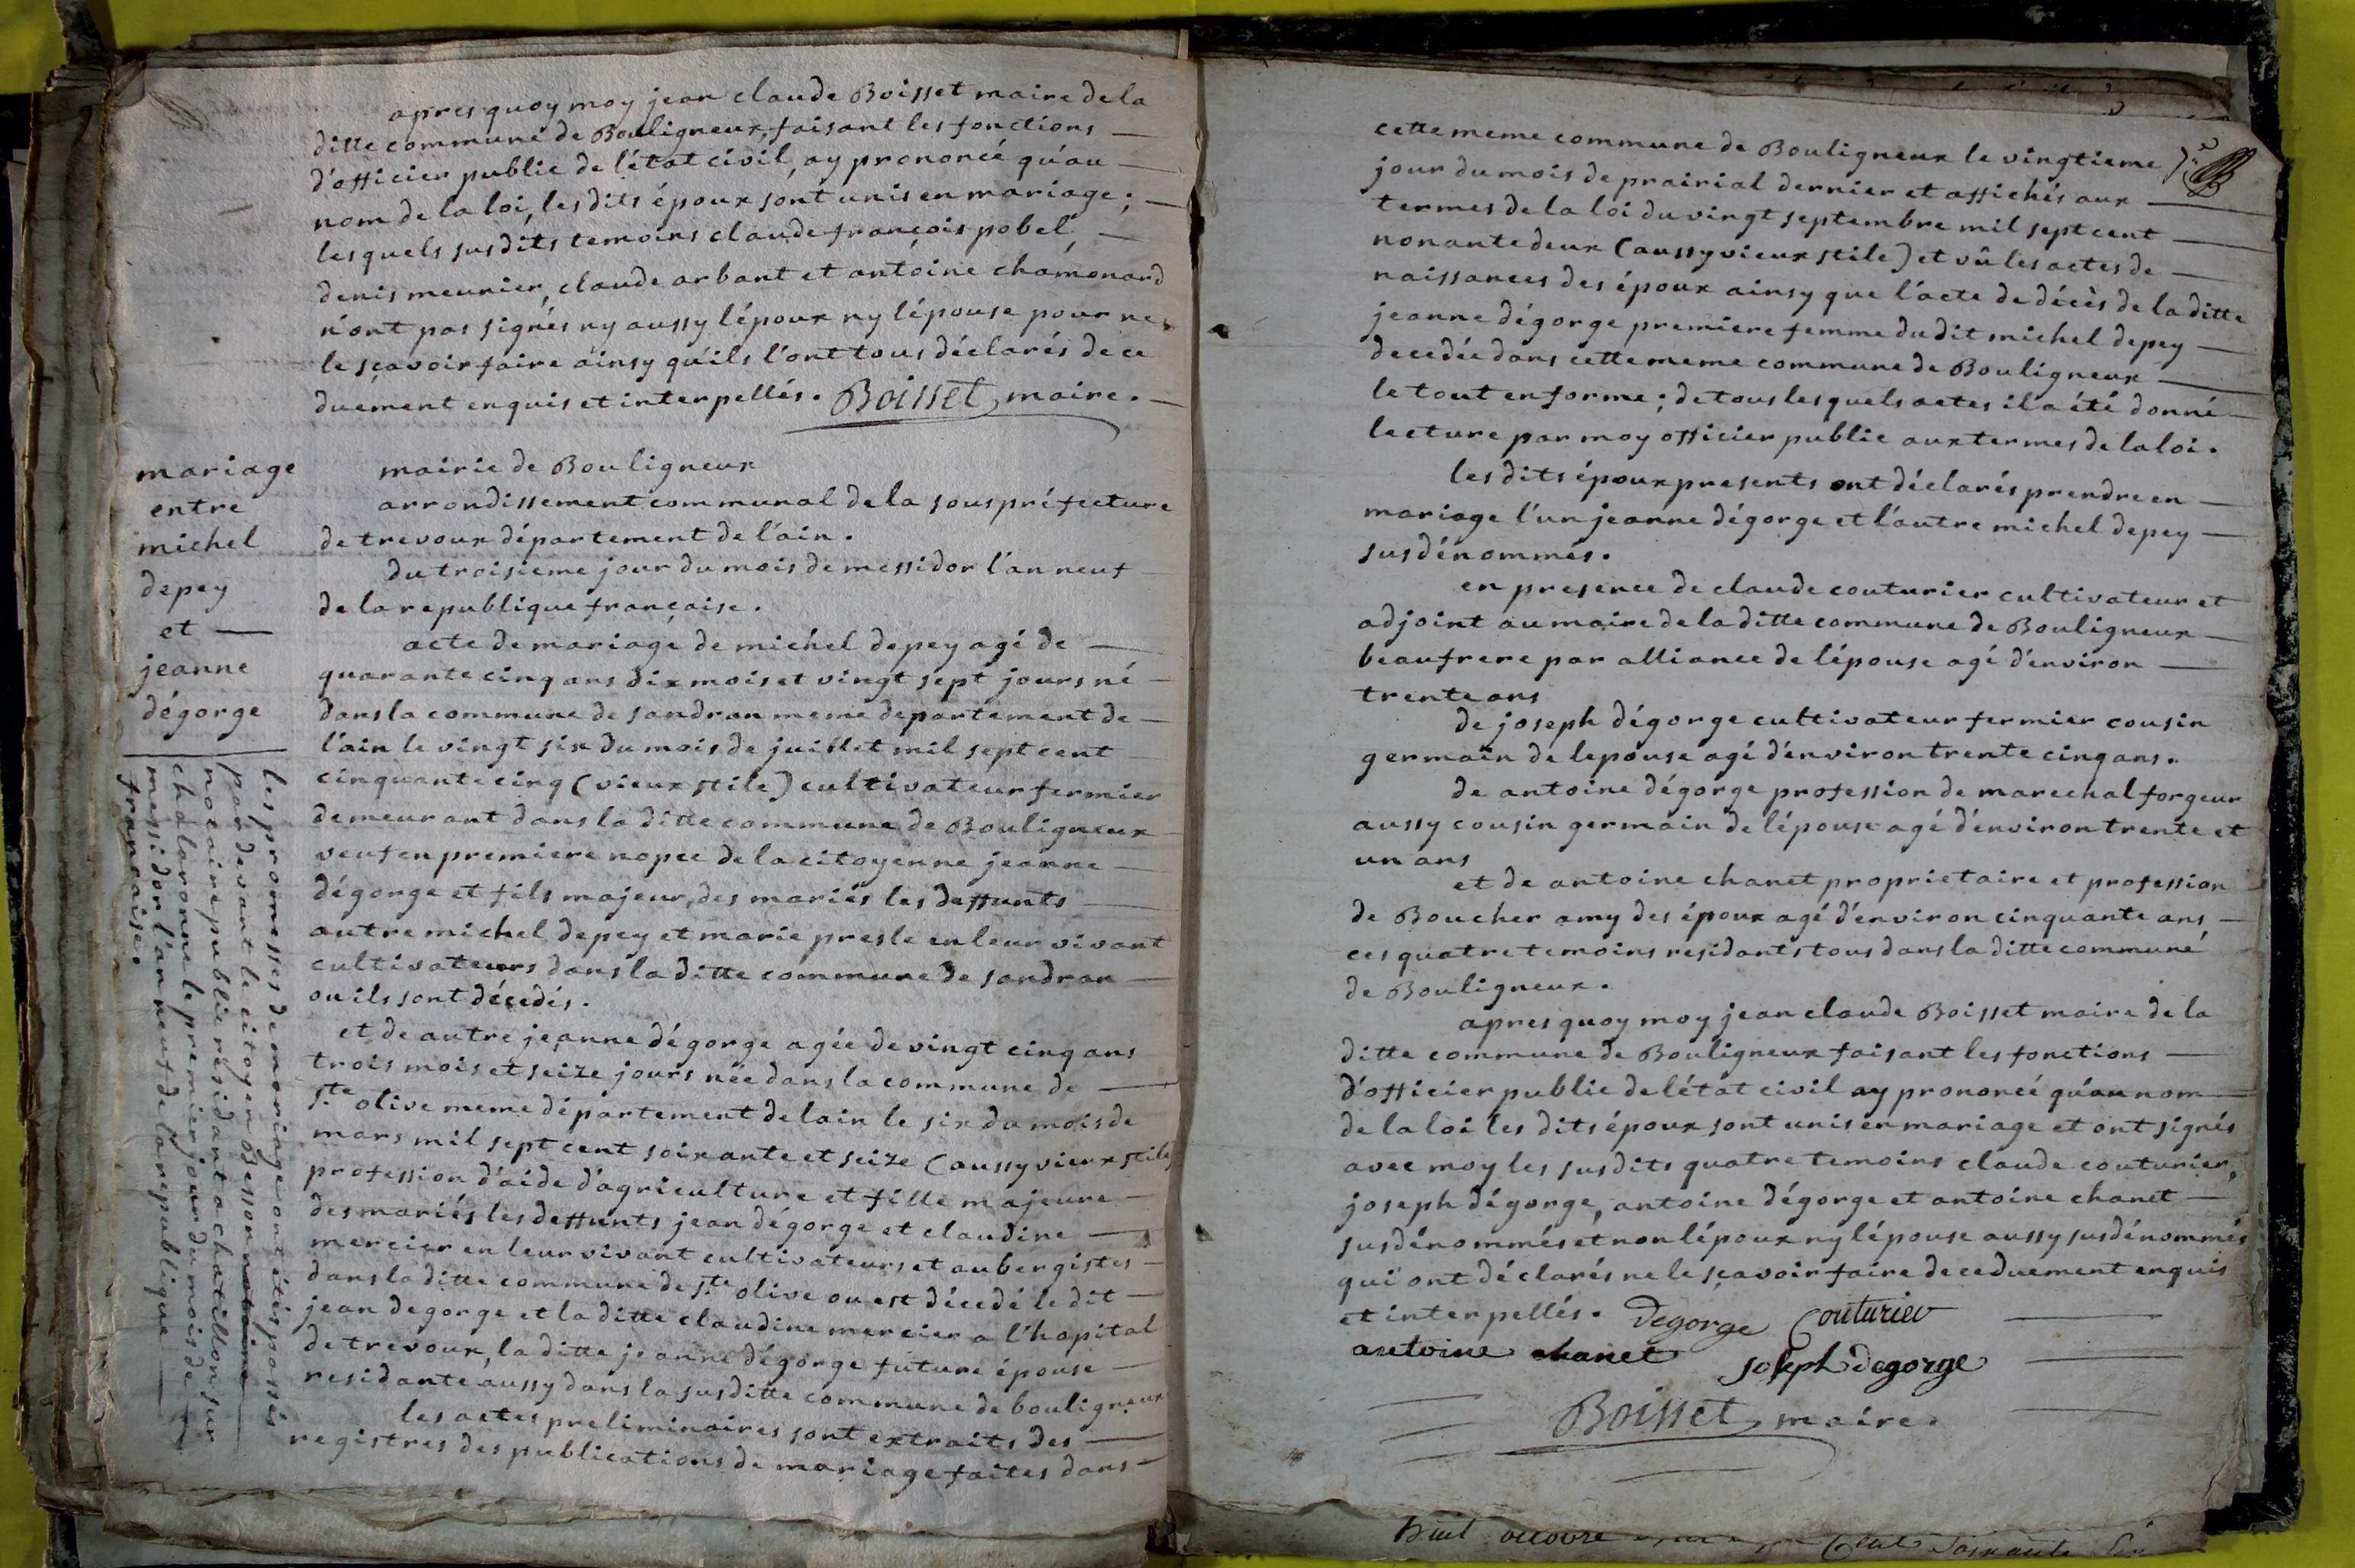 apres quoy moy jean claude Boisset maire de la
ditte commune de Bouligneux, faisant les fonctions —
d'officier public de l'état civil, ay prononcé qu'au —
nom de la loi, les dits époux sont unis en mariage ; —
lesquels susdits temoins claude françois pobel, —
denis meunier, claude arbant et antoine chamonard
n'ont pas signés ny aussy l'époux ny l'épouse pour ne
le sçavoir faire ainsy qu'ils l'ont tous déclarés de ce
duement enquis et interpellés. Boisset, maire. —
mariage
entre
michel
depey
et —
jeanne
dégorge
les promesses de mariage ont étés passés
par devant le citoyen besson notaire
notaire public residant a chatillon sur
chalaronne le premier jour du mois de
messidor l'an neuf de la republique —
française.
mairie de Bouligneux
arrondissement communal de la souspréfecture
de trevoux département de l'ain.
du troisieme jour du mois de messidor l'an neuf
de la republique française.
acte de mariage de michel depey agé de —
quarante cinq ans dix mois et vingt sept jours né —
dans la commune de sandran meme departement de —
l'ain le vingt six du mois de juillet mil sept cent
cinquante cinq (vieux stile) cultivateur fermier
demeurant dans la ditte commune de Bouligneux
veuf en premiere nopce de la citoyenne jeanne —
dégorge et fils majeur, des mariés les deffunts —
autre michel depey et marie presle en leur vivant
cultivateurs dans la ditte commune de sandran —
ou ils sont décedés.
et de autre jeanne dégorge agée de vingt cinq ans
trois mois et seize jours née dans la commune de —
ste olive meme département de lain le six du mois de
mars mil sept cent soixante et seize (aussy vieux stile)
profession d'aide d'agriculture et fille majeure —
des mariés les deffunts jean dégorge et claudine —
mercier en leur vivant cultivateurs et aubergistes —
dans la ditte commune de ste olive ou est décedé le dit —
jean degorge et la ditte claudine mercier a l'hopital
de trevoux, la ditte jeanne dégorge future épouse —
residante aussy dans la susditte commune de bouligneux
les actes preliminaires sont extraits des —
registres des publications de mariage faites dans —
cette meme commune de Bouligneux le vingtieme
jour du mois de prairial dernier et affichés aux —
termes de la loi du vingt septembre mil sept cent —
nonante deux (aussy vieux stile) et vû les actes de —
naissances des époux ainsy que l'acte de décès de la ditte
jeanne dégorge premiere femme du dit michel depey —
decedée dans cette meme commune de Bouligneux —
le tout en forme ; de tous lesquels actes il a été donné —
lecture par moy officier public aux termes de la loi.
les dits époux presents ont déclarés prendre en —
mariage l'un jeanne dégorge et l'autre michel depey —
susdénommés.
en presence de claude couturier cultivateur et
adjoint au maire de la ditte commune de Bouligneux —
beaufrere par alliance de l'épouse agé d'environ —
trente ans
de joseph dégorge cultivateur fermier cousin
germain de lepouse agé d'environ trente cinq ans.
de antoine dégorge profession de marechal forgeur
aussy cousin germain de l'épouse agé d'environ trente et
un ans
et de antoine chanet proprietaire et profession
de Boucher amy des époux agé d'environ cinquante ans, —
ces quatre temoins residants tous dans la ditte commune
de Bouligneux.
apres quoy moy jean claude Boisset maire de la
ditte commune de Bouligneux faisant les fonctions —
d'officier public de l'état civil ay prononcé qu'au nom —
de la loi les dits époux sont unis en mariage et ont signés
avec moy les susdits quatre temoins claude couturier,
joseph dégorge, antoine dégorge et antoine chanet —
susdénommés et non l'époux ny l'épouse aussy susdénommés
qui ont déclarés ne le sçavoir faire de ce duement enquis
et interpellés. Degorge Couturier —
antoine chanet joseph degorge —
Boisset, maire.
huit